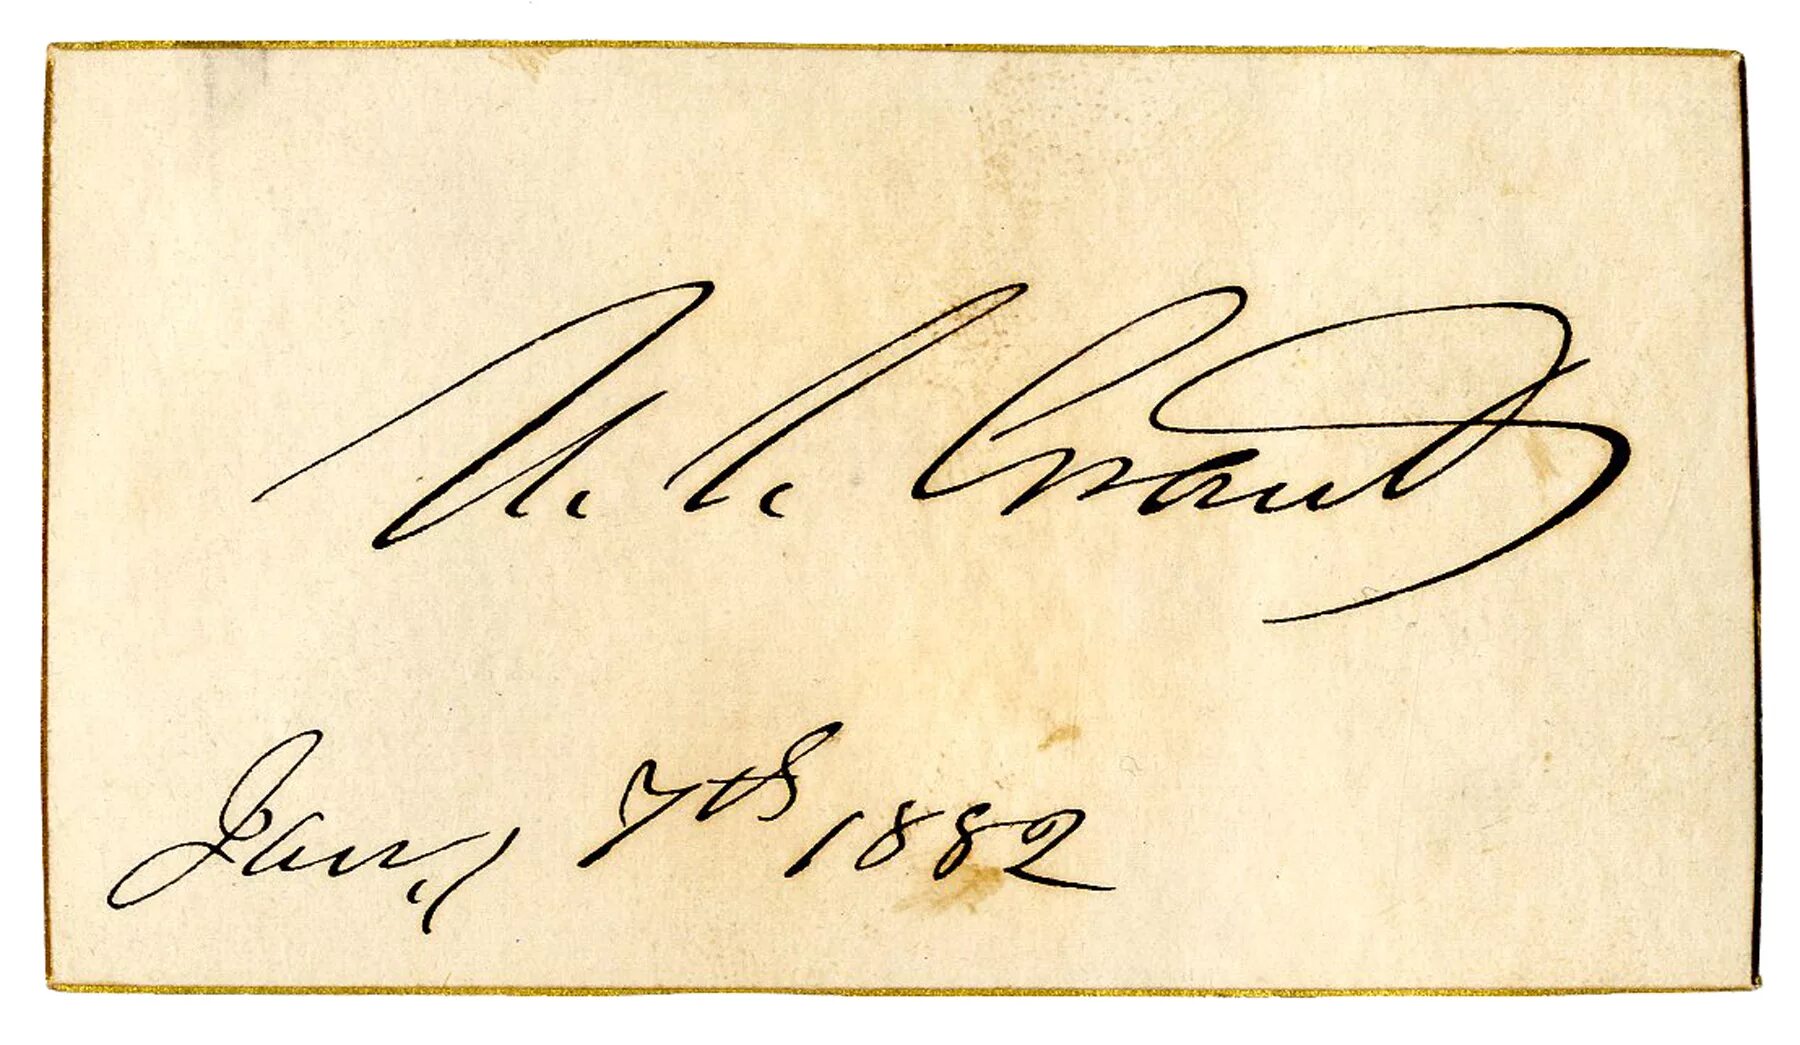 U. S. Grant
Jany 7th 1882